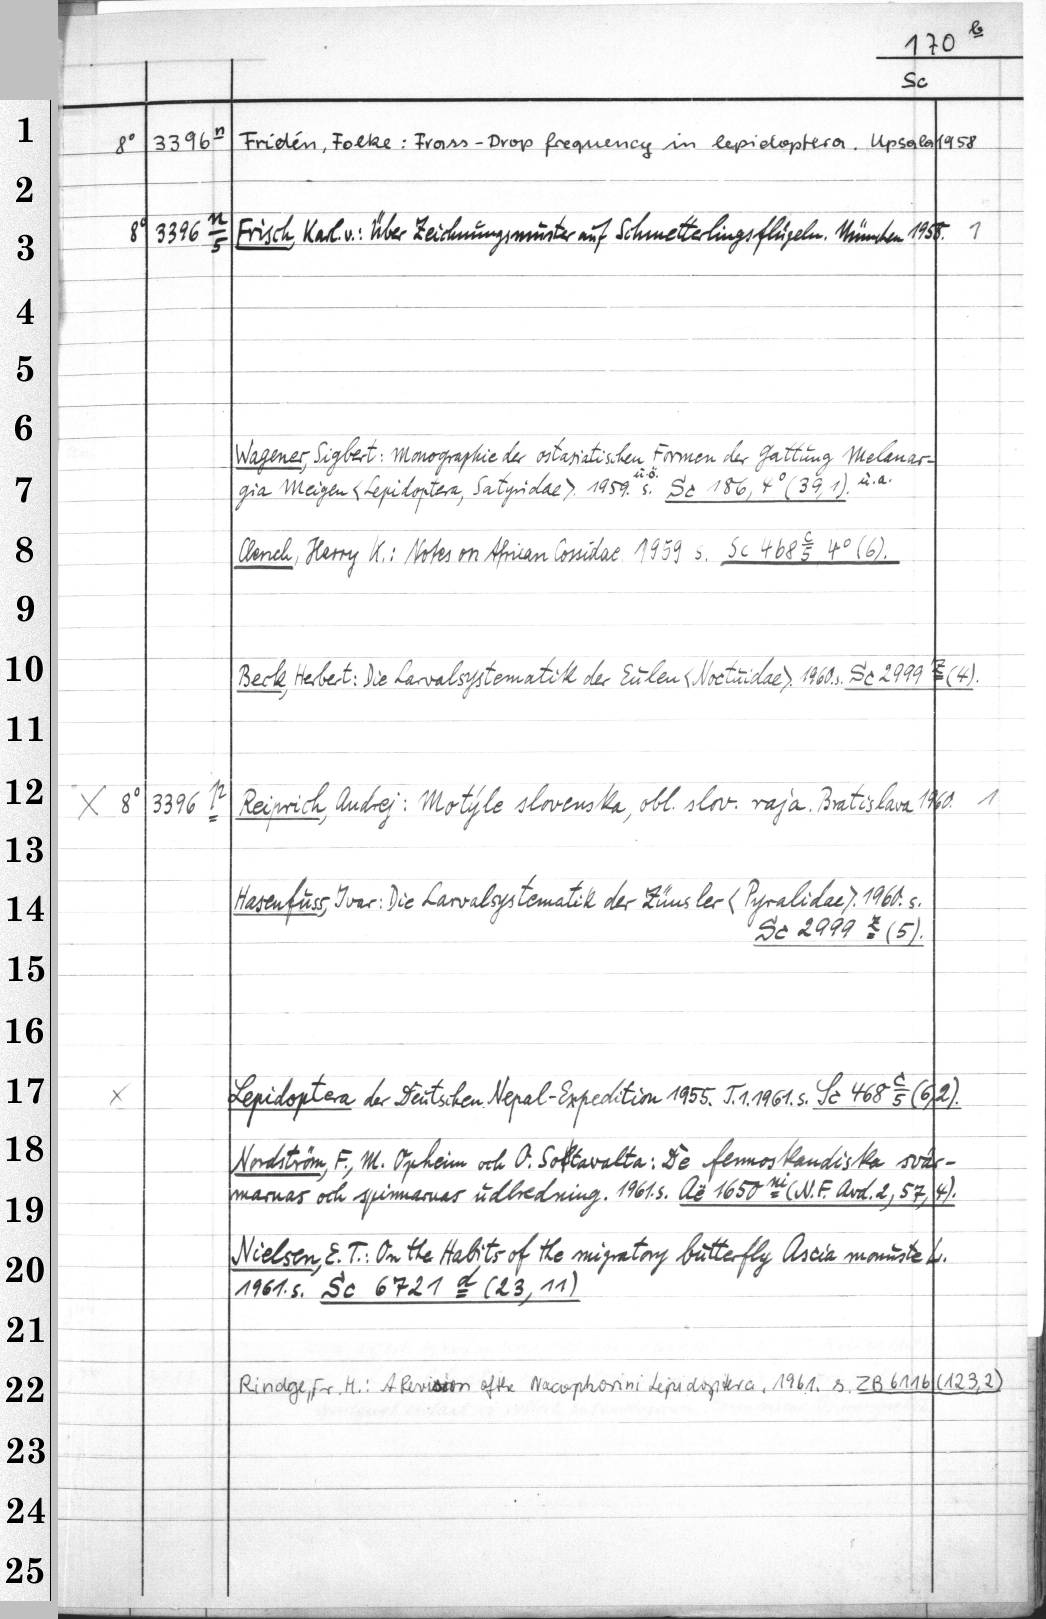 170 b
Sc
1 8° 3396 n Fridén, Folke: Frass-Drop frequency in lepidoptera. Upsala 1958
2
3 8° 3396 n/5 Frisch, Karl v.: Über Zeichnungsmuster auf Schmetterlingsflügeln. München 1958. 1
4
5
6
Wagener, Sigbert: Monographie der ostasiatischen Formen der Gattung Melanar-
7 gia Meigen <Lepidoptera, Satyridae>. 1959. u.ö. s. Sc 186, 4° (39,1). u.a.
8 Clench, Harry K.: Notes on African Cossidae 1959 s. Sc 468 c/5 4° (6).
9
10 Beck, Herbert: Die Larvalsystematik der Eulen <Noctuidae>. 1960. s. Sc 2999 z (4).
11
12 X 8° 3396 p Reiprich, Andrej: Motýle slovenska, obl. slov. raja. Bratislava 1960. 1
13
14 Hasenfuss, Ivar: Die Larvalsystematik der Zünsler <Pyralidae>. 1960. s.
Sc 2999 z (5).
15
16
17 x Lepidoptera der Deutschen Nepal-Expedition 1955. T.1.1961. s. Sc 468 c/5 (6,2).
18 Nordström, F., M. Opheim och O. Sotavalta: De fennoskandiska svär-
19 marnas och spinnarnas udbredning. 1961. s. Aë 1650 ni (N.F. Avd. 2, 57, 4).
Nielsen, E. T.: On the Habits of the migratory butterfly Ascia monuste L.
20 1961. s. Sc 6721 d (23, 11)
21
22 Rindge, Fr. H.: A Revision of the Nacophorini Lepidoptera. 1961. s. ZB 6116 (123,2)
23
24
25